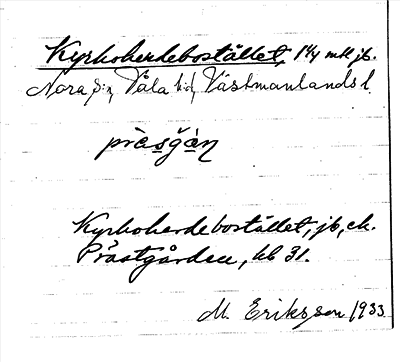 Kyrkoherdebostället, 1 1/4 mtl jb.
Nora sn, Våla hd, Västmanlands l.
pràsgàṇ
Kyrkoherdebostället, jb, ek.
Prästgården, hb 31.
M. Eriksson 1933